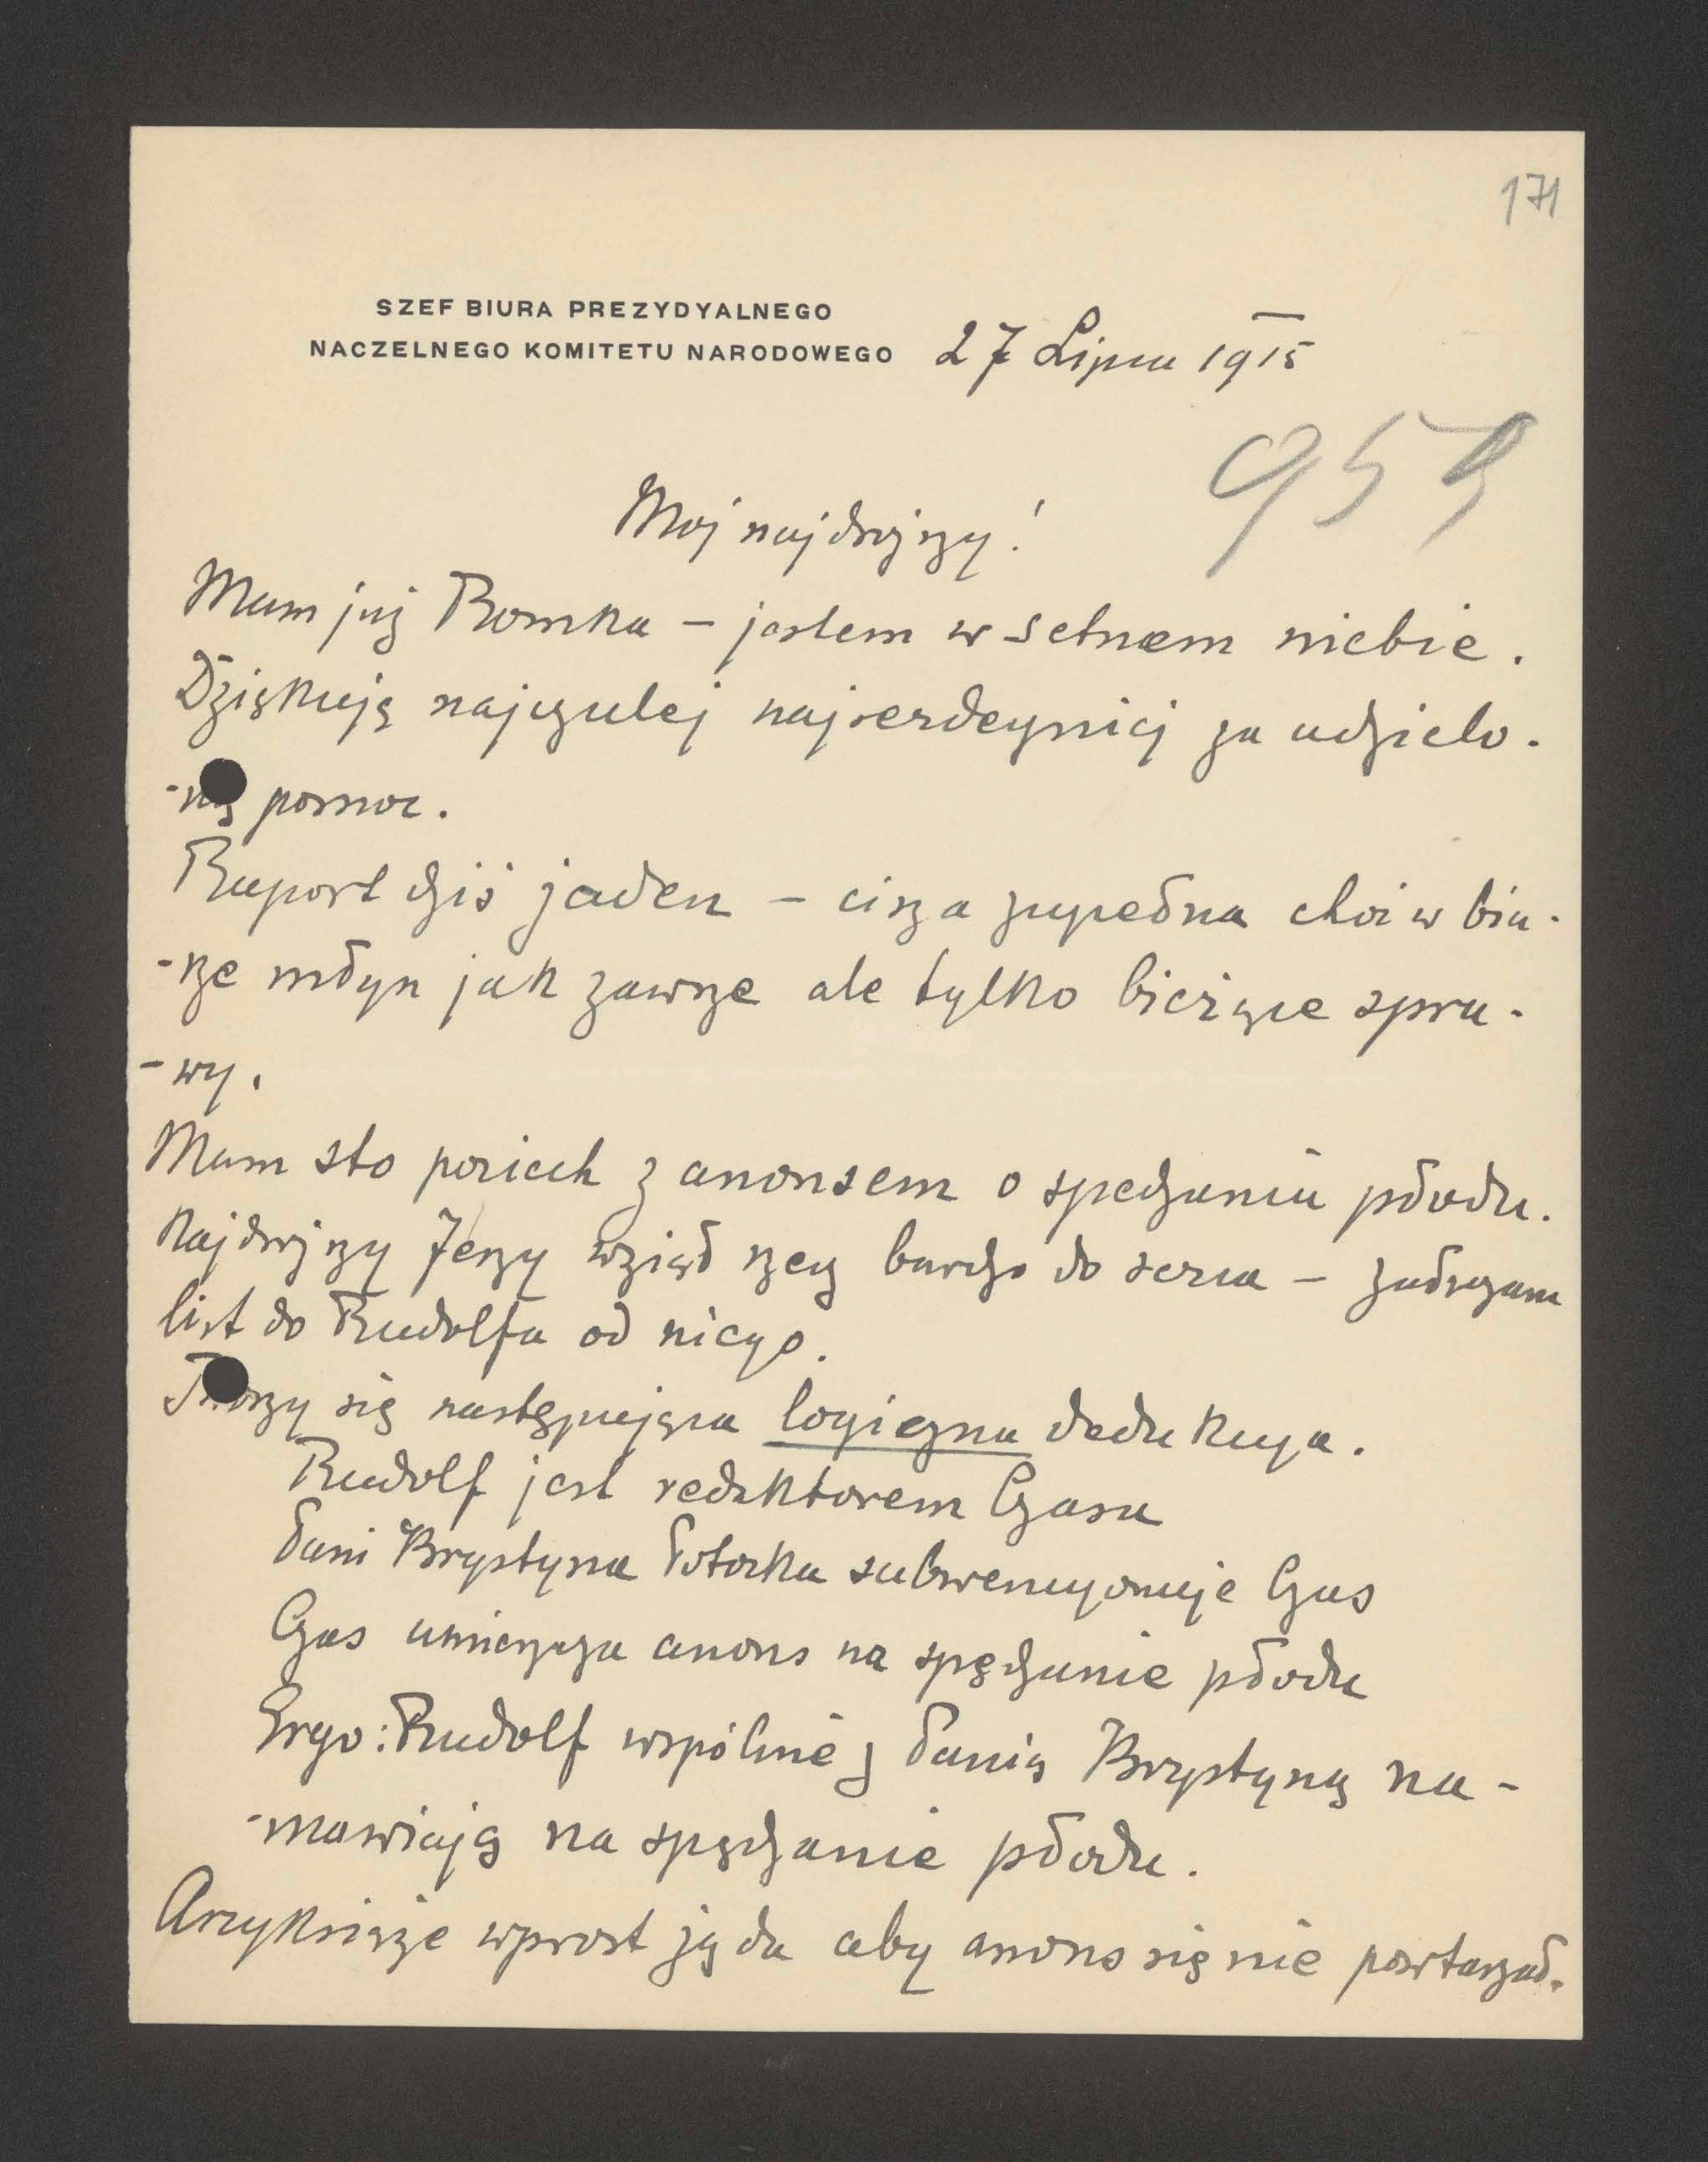 171
SZEF BIURA PREZYDYALNEGO
NACZELNEGO KOMITETU NARODOWEGO 27 Lipca 1915
959
Moj najdroższy!
Mam już Romka – jestem w setnem niebie.
Dziękuję najczulej najserdeczniej za udzielo-
-ną pomoc.
Raport dziś jeden – cisza zupełna choć w biu-
-rze młyn jak zawsze ale tylko bieżące spra-
-wy.
Mam sto pociech z anonsem o spędzaniu płodu.
Najdroższy Jerzy wziął rzecz bardzo do serca – załączam
list do Rudolfa od niego.
Tworzy się następująca logiczna dedukcya.
Rudolf jest redaktorem Czasu
Pani Krystyna Potocka subwencyonuje Czas
Czas umieszcza anons na spędzanie płodu
Ergo: Rudolf wspólnie z Panią Krystyną na-
-mawiają na spędzanie płodu.
Arcyksiąże wprost żąda aby anons się nie powtarzał.